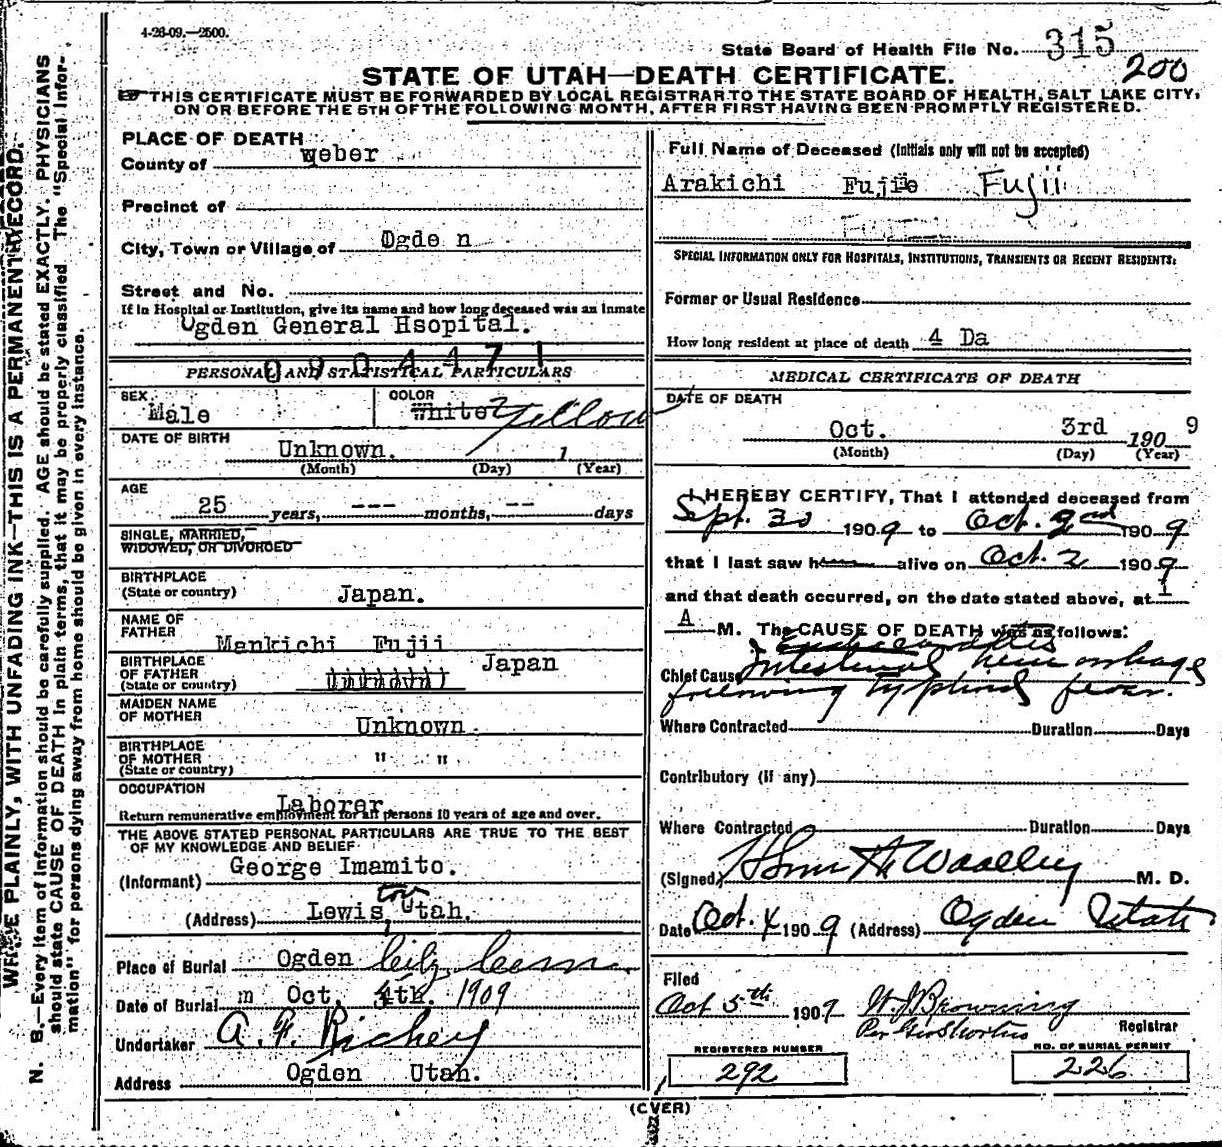 4-26-09.—2500.
State Board of Health File No. 315
200
STATE OF UTAH—DEATH CERTIFICATE.
THIS CERTIFICATE MUST BE FORWARDED BY LOCAL REGISTRAR TO THE STATE BOARD OF HEALTH, SALT LAKE CITY,
ON OR BEFORE THE 5TH OF THE FOLLOWING MONTH, AFTER FIRST HAVING BEEN PROMPTLY REGISTERED.
PLACE OF DEATH
County of Weber
Precinct of
City, Town or Village of Ogde n
Street and No.
If in Hospital or Institution, give its name and how long deceased was an inmate
Ogden General Hsopital.
0904471
PERSONAL AND STATISTICAL PARTICULARS
SEX Male
COLOR White? Yellow
DATE OF BIRTH
Unknown. 1
(Month) (Day) (Year)
AGE
25 years, --- months, -- days
SINGLE, MARRIED,
WIDOWED, OR DIVORCED
BIRTHPLACE
(State or country) Japan.
NAME OF
FATHER Mankichi Fujii
BIRTHPLACE
OF FATHER Japan
(State or country) Unknown
MAIDEN NAME
OF MOTHER Unknown.
BIRTHPLACE
OF MOTHER " "
(State or country)
OCCUPATION
Laborer
Return remunerative employment for all persons 10 years of age and over.
THE ABOVE STATED PERSONAL PARTICULARS ARE TRUE TO THE BEST
OF MY KNOWLEDGE AND BELIEF
(Informant) George Imamito.
(Address) Lewis, Utah.
Place of Burial Ogden City Cem.
Date of Burial m Oct, 4th. 1909
Undertaker A. F. Richey
Address Ogden Utah.
Full Name of Deceased (Initials only will not be accepted)
Arakichi Fujie Fujii
SPECIAL INFORMATION ONLY FOR HOSPITALS, INSTITUTIONS, TRANSIENTS OR RECENT RESIDENTS:
Former or Usual Residence
How long resident at place of death 4 Da
MEDICAL CERTIFICATE OF DEATH
DATE OF DEATH
Oct. 3rd 190 9
(Month) (Day) (Year)
I HEREBY CERTIFY, That I attended deceased from
Sept. 30 190 9 to Oct. 2nd 190 9
that I last saw h alive on Oct. 2 190 9
and that death occurred, on the date stated above, at 1
A M. The CAUSE OF DEATH was as follows:
Chief Cause Intestinal hemorrhage
following typhoid fever.
Where Contracted Duration Days
Contributory (if any)
Where Contracted Duration Days
(Signed) M. D.
Date Oct. 4 190 9 (Address) Ogden Utah
Filed
Oct 5th 1909 W. J. Browning
Per Registrar
REGISTERED NUMBER
292
NO. OF BURIAL PERMIT
226
(OVER)
WRITE PLAINLY, WITH UNFADING INK—THIS IS A PERMANENT RECORD.
N. B.—Every item of information should be carefully supplied. AGE should be stated EXACTLY. PHYSICIANS
should state CAUSE OF DEATH in plain terms, that it may be properly classified. The "Special Infor-
mation" for persons dying away from home should be given in every instance.